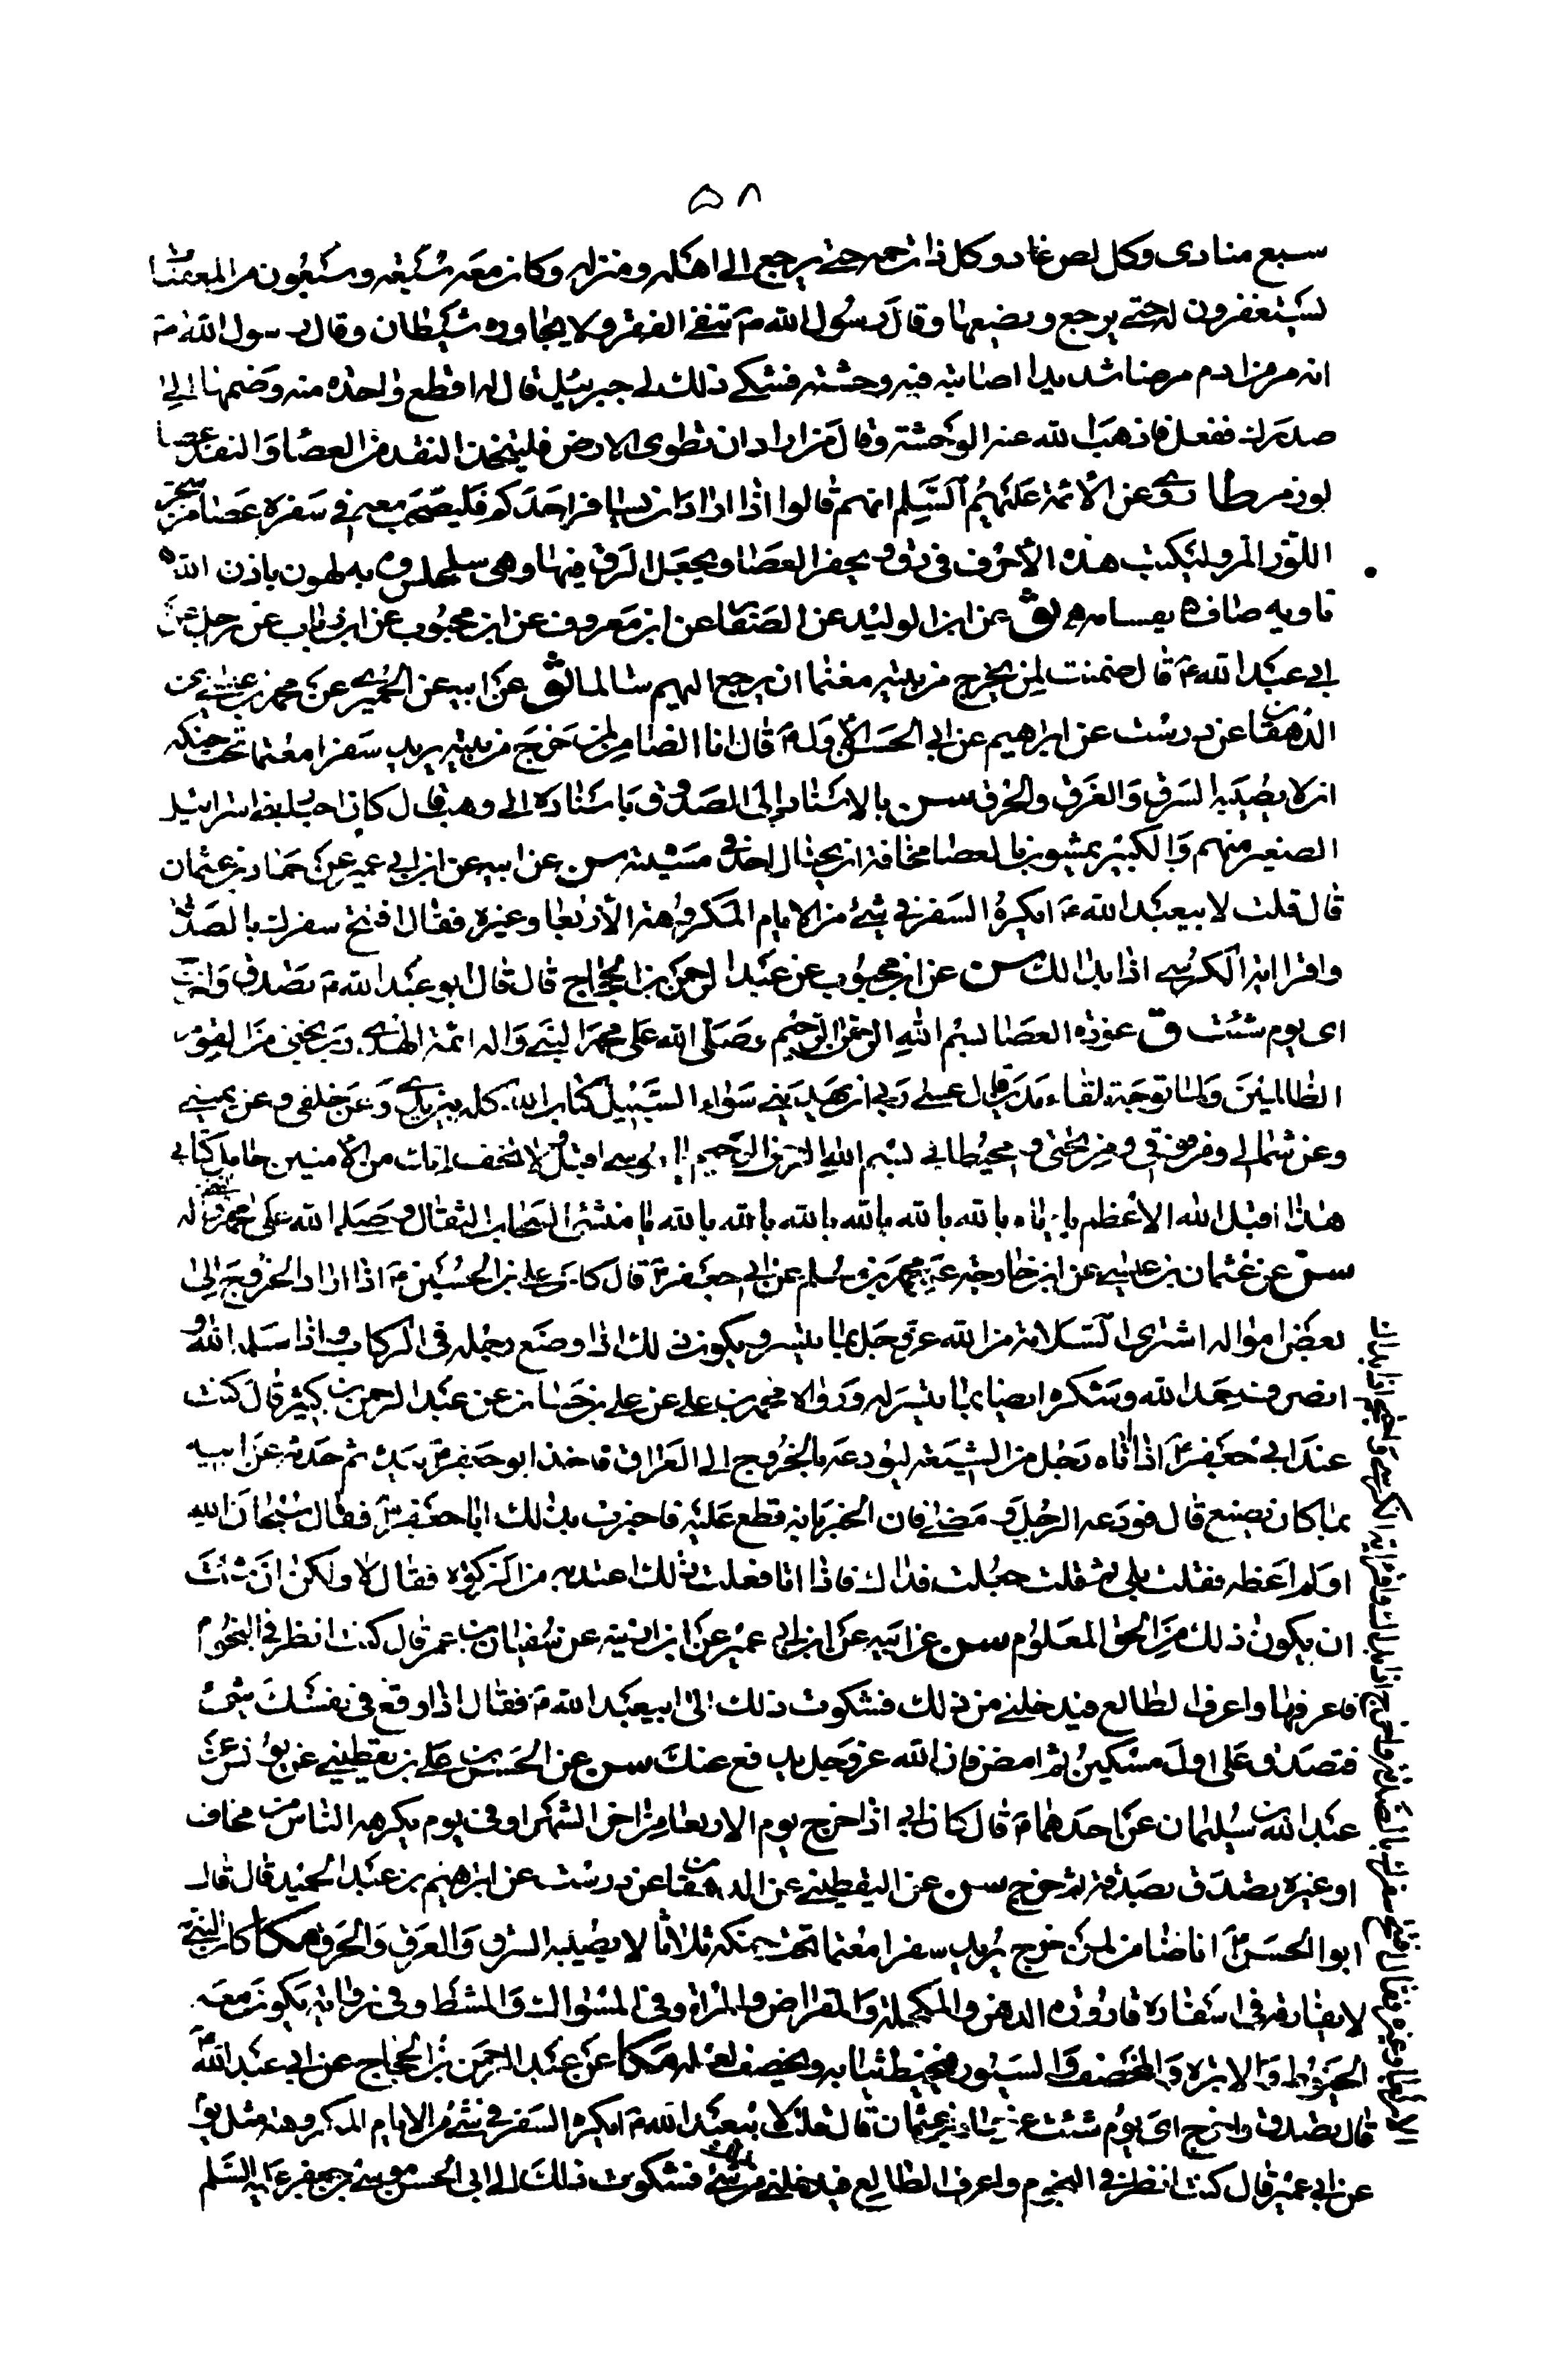 ۵۸
سبع ضاري وكل لص عاد وكل ذات حمة حتى يرجع الى اهله ومنزله وكان معه سبعة وسبعون من المعقبات
يستغفرون له حتى يرجع ويضعها وقال رسول الله ص تنفى الفقر ولا يجاوره شيطان وقال رسول الله ص
انه مرض ادم مرضا شديدا اصابته فيه وحشة فشكى ذلك الى جبرئيل قال له اقطع واحدة منه وضمها الى
صدرك ففعل فاذهب الله عنه الوحشة وقال من اراد ان تطوى له الارض فليتخذ النقد من العصا والنقد عصا
لوز مر طا روى عن الائمة عليهم السلم انهم قالوا اذا اراد ان يسافر احدكم فليصحب معه في سفره عصا من شجر
اللوز المر وليكتب هذه الاحرف في رق ويحفر العصا ويجعل الرق فيها وهى به لهون باذن الله
عن ابن الوليد عن الصفار عن ابن معروف عن ابن محبوب عن ابن رئاب عن رجل عن
ابي عبد الله ع قال ضمنت لمن يخرج من بيته معتما ان يرجع اليهم سالما عن ابيه عن الحميرى عن محمد بن عيسى عن
الدهقان عن درست عن ابراهيم عن ابي الحسن الاول ع قال انا الضامن لمن خرج من بيته يريد سفرا معتما تحت حنكه
ان لا يصيبه السرق والغرق والحرق سن بالاسناد الى الصدوق باسناده الى وهب قال كان احبار بنى اسرائيل
الصغير منهم والكبير يمشون بالعصا مخافة ان يختال احد في مشيته سن عن ابيه عن ابن ابي عمير عن حماد بن عثمان
قال قلت لابيعبد الله ع ايكره السفر في شئ من الايام المكروهة الاربعا وغيره فقال افتتح سفرك بالصدقة
واقرا اية الكرسي اذا بدا لك سن عن ابن محبوب عن عبد الرحمن بن الحجاج قال قال ابو عبد الله ع تصدق واخرج
اى يوم شئت ق عوذة العصا بسم الله الرحمن الرحيم وصلى الله على محمد النبي واله ائمة الهدى رب نجني من القوم
الظالمين ولما توجه تلقاء مدين قال عسى ربي ان يهديني سواء السبيل كتاب الله كله بين يدى وعن خلفي وعن يميني
وعن شمالي ومن فوقي ومن تحتي ومحيط بي بسم الله الرحمن الرحيم يا موسى اقبل ولا تخف انك من الامنين حامل كتابي
هذا اقبل الله الاعظم يا الله يا الله يا الله يا الله يا الله يا الله يا منشئ السحاب الثقال وصلى الله على محمد واله
سن عن عثمان بن عيسى عن ابن خارجة عن محمد بن مسلم عن ابي جعفر ع قال كان على بن الحسين ع اذا اراد الخروج الى
بعض امواله اشترى السلامة من الله عز وجل بما تيسر ويكون ذلك اذا وضع رجله في الركاب واذا سلمه الله و
انصرف حمد الله وشكره ايضا بما تيسر له ورواه محمد بن علي عن علي بن حسان عن عبد الرحمن بن كثير قال كنت
عند ابي جعفر ع اذا اتاه رجل من الشيعة ليودعه بالخروج الى العراق فاخذ ابو جعفر ع بيده ثم حدثه عن ابيه
بما كان يصنع قال فودعه الرجل ومضى فاتى الخبر بانه قطع عليه فاخبرت بذلك ابا جعفر ع فقال سبحان الله
اولم اعظه فقلت بلى ثم قلت جعلت فداك فاذا انا فعلت ذلك اعتد به من الزكوة فقال لا ولكن ان شئت
ان يكون ذلك من الحق المعلوم سن عن ابيه عن ابن ابي عمير عن ابن اذينه عن سفيان بن عمر قال كنت انظر في النجوم
فاعرفها واعرف الطالع فيدخلني من ذلك فشكوت ذلك الى ابيعبد الله ع فقال اذا وقع في نفسك شئ
فتصدق على اول مسكين ثم امض فان الله عز وجل يدفع عنك سن عن الحسن بن علي بن يقطين عن يونس عن
عبد الله بن سليمان عن احدهما ع قال كان ابي اذا خرج يوم الاربعا من اخر الشهر او في يوم يكرهه الناس من محاق
او غيره تصدق بصدقة ثم خرج سن عن اليقطيني عن الدهقان عن درست عن ابراهيم بن عبد الحميد قال قال
ابو الحسن ع انا ضامن لمن خرج يريد سفرا معتما تحت حنكه ثلاثا لا يصيبه السرق والغرق والحرق مكا كان النبي ص
لا يفارقه في اسفاره قارورة الدهن والمكحلة والمقراض والمراة والمسواك والمشط وفي رواية يكون معه
الخيوط والابرة والمخصف والسيور فيخيط ثيابه ويخصف نعله مكا عن عبد الرحمن بن الحجاج عن ابي عبد الله ع
قال تصدق واخرج اى يوم شئت عن حماد بن عثمان قال قلت لابيعبد الله ع ايكره السفر في شئ من الايام المكروهة مثل يوم
عن ابي عمير قال كنت انظر في النجوم واعرف الطالع فيدخلني من ذلك شئ فشكوت ذلك الى ابي الحسن موسى بن جعفر عليه السلم
الاربعا وغيره فقال افتتح سفرك بالصدقة واخرج اذا بدا لك واقرا اية الكرسي واحتجم اذا بدا لك